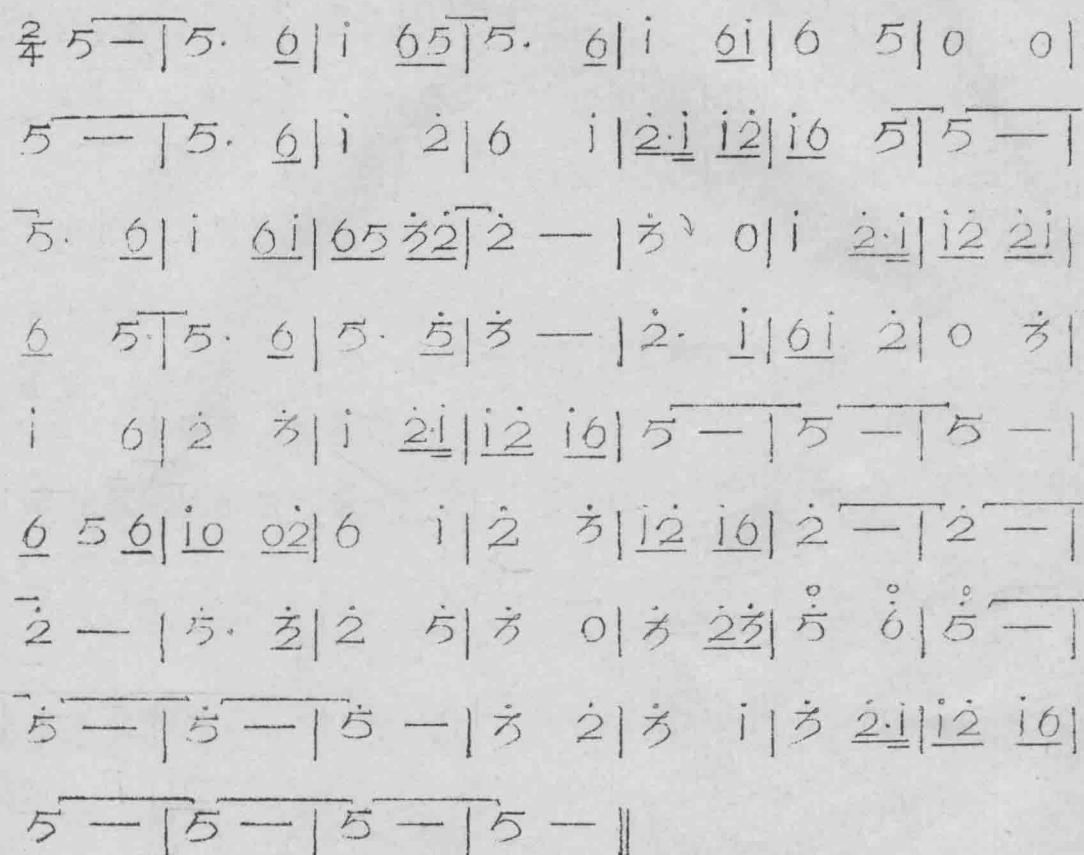 2/4 5 — | 5. 6 | i 65 | 5. 6 | i 6i | 6 5 | 0 0 |
5 — | 5. 6 | i 2̇ | 6 i | 2̇·i i2̇ | i6 5 | 5 — |
5. 6 | i 6i | 65 3̇2̇ | 2̇ — | 3̇ 0 | i 2̇·i | i2̇ 2̇i |
6 5· | 5. 6 | 5· 5̇ | 3̇ — | 2̇· i | 6i 2̇ | 0 3̇ |
i 6 | 2̇ 3̇ | i 2̇·i | i2̇ i6 | 5 — | 5 — | 5 — |
6 5 6 | i0 02̇ | 6 i | 2̇ 3̇ | i2̇ i6 | 2̇ — | 2̇ — |
2̇ — | 5̇· 3̇2̇ | 2̇ 5̇ | 3̇ 0 | 3̇ 2̇3̇ | 5̇ 6̇ | 5̇ — |
5̇ — | 5̇ — | 5̇ — | 3̇ 2̇ | 3̇ i | 3̇ 2̇·i | i2̇ i6 |
5 — | 5 — | 5 — | 5 — ‖